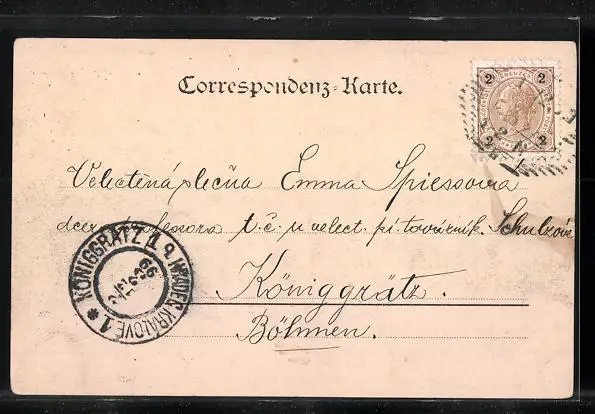 Correspondenz-Karte.
2 KREUZER 2
2 2
Velectená slečna Emma Spiessova
dcer. professora t.č. u velect. pí továrník. Schulzové
Königgrätz.
Böhmen.
KÖNIGGRÄTZ HRADEC KRALOVE 1
99